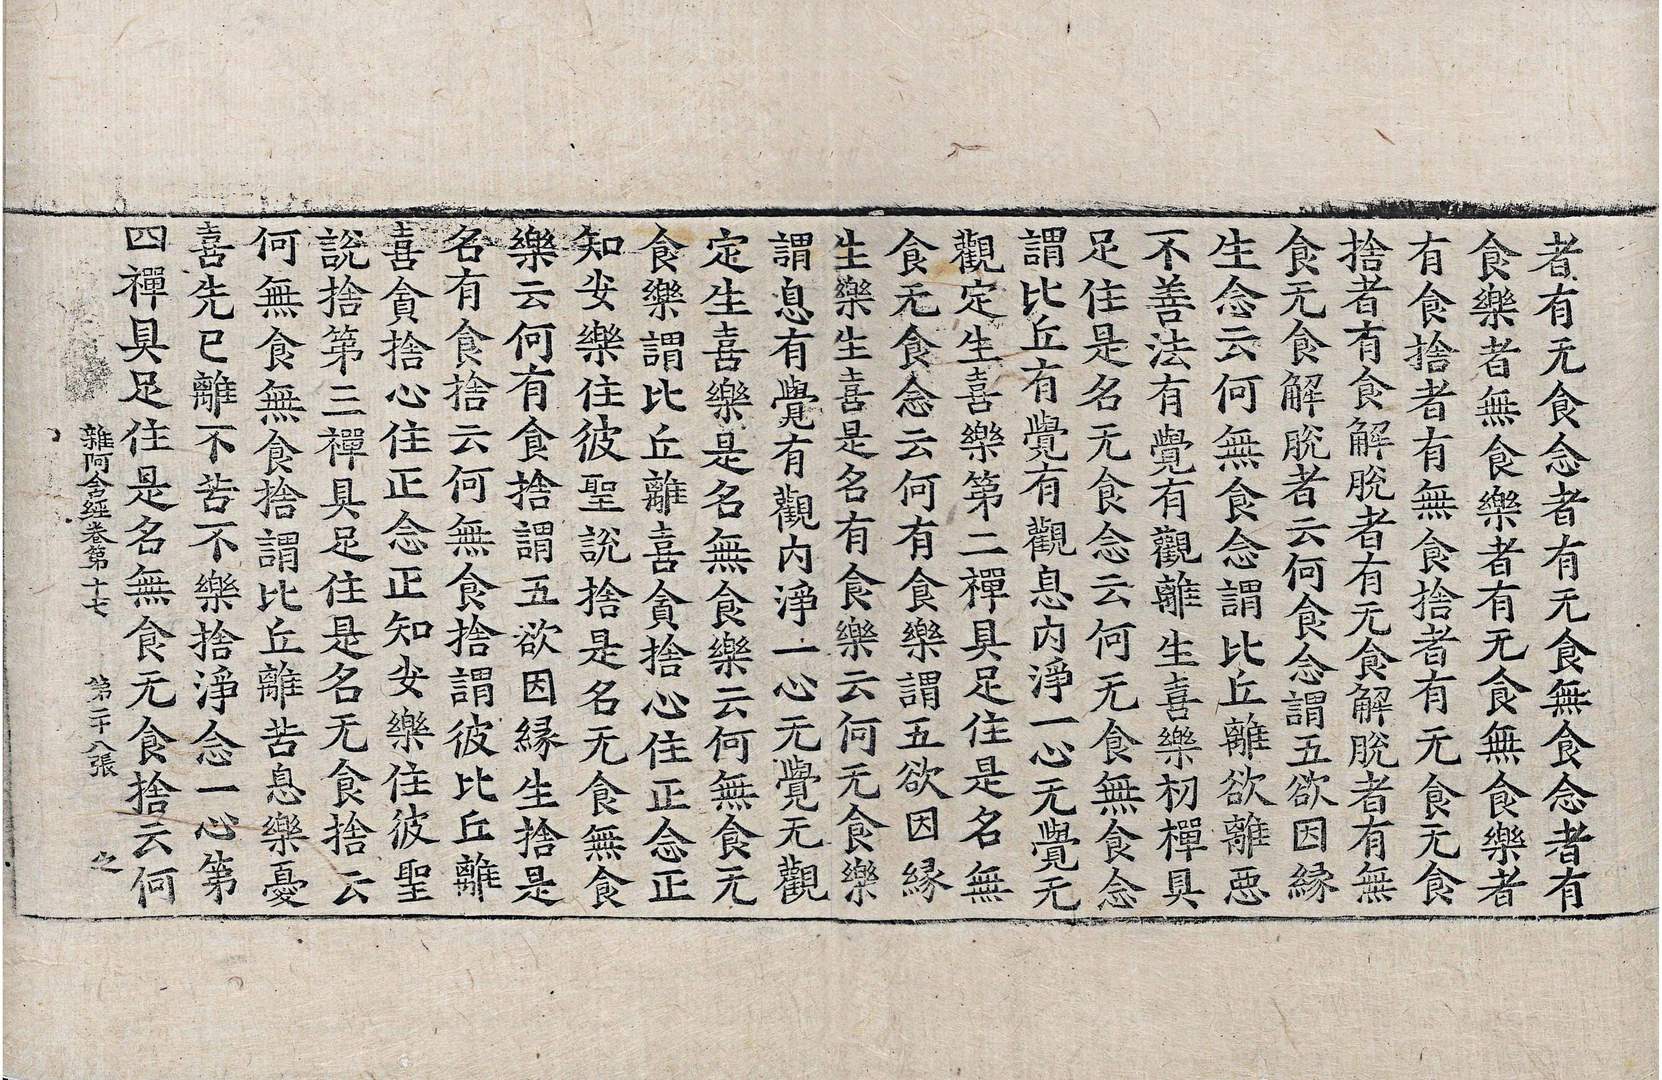 者有无食念者有无食無食念者有
食樂者無食樂者有无食無食樂者
有食捨者有無食捨者有无食无食
捨者有食解脫者有无食解脫者有無
食无食解脫者云何食念謂五欲因縁
生念云何無食念謂比丘離欲離惡
不善法有覺有觀離生喜樂初禪具
足住是名无食念云何无食無食念
謂比丘有覺有觀息内淨一心无覺无
觀定生喜樂第二禪具足住是名無
食无食念云何有食樂謂五欲因縁
生樂生喜是名有食樂云何无食樂
謂息有覺有觀内淨一心无覺无觀
定生喜樂是名無食樂云何無食无
食樂謂比丘離喜貪捨心住正念正
知安樂住彼聖說捨是名无食無食
樂云何有食捨謂五欲因縁生捨是
名有食捨云何無食捨謂彼比丘離
喜貪捨心住正念正知安樂住彼聖
說捨第三禪具足住是名无食捨云
何無食無食捨謂比丘離苦息樂憂
喜先已離不苦不樂捨淨念一心第
四禪具足住是名無食无食捨云何
雜阿含經卷第十七 第二十八張 之